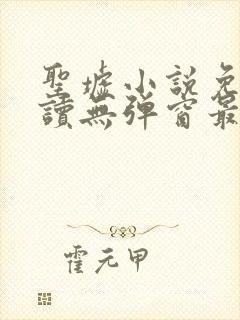 聖墟小說免
讀無彈窗最
霍元甲